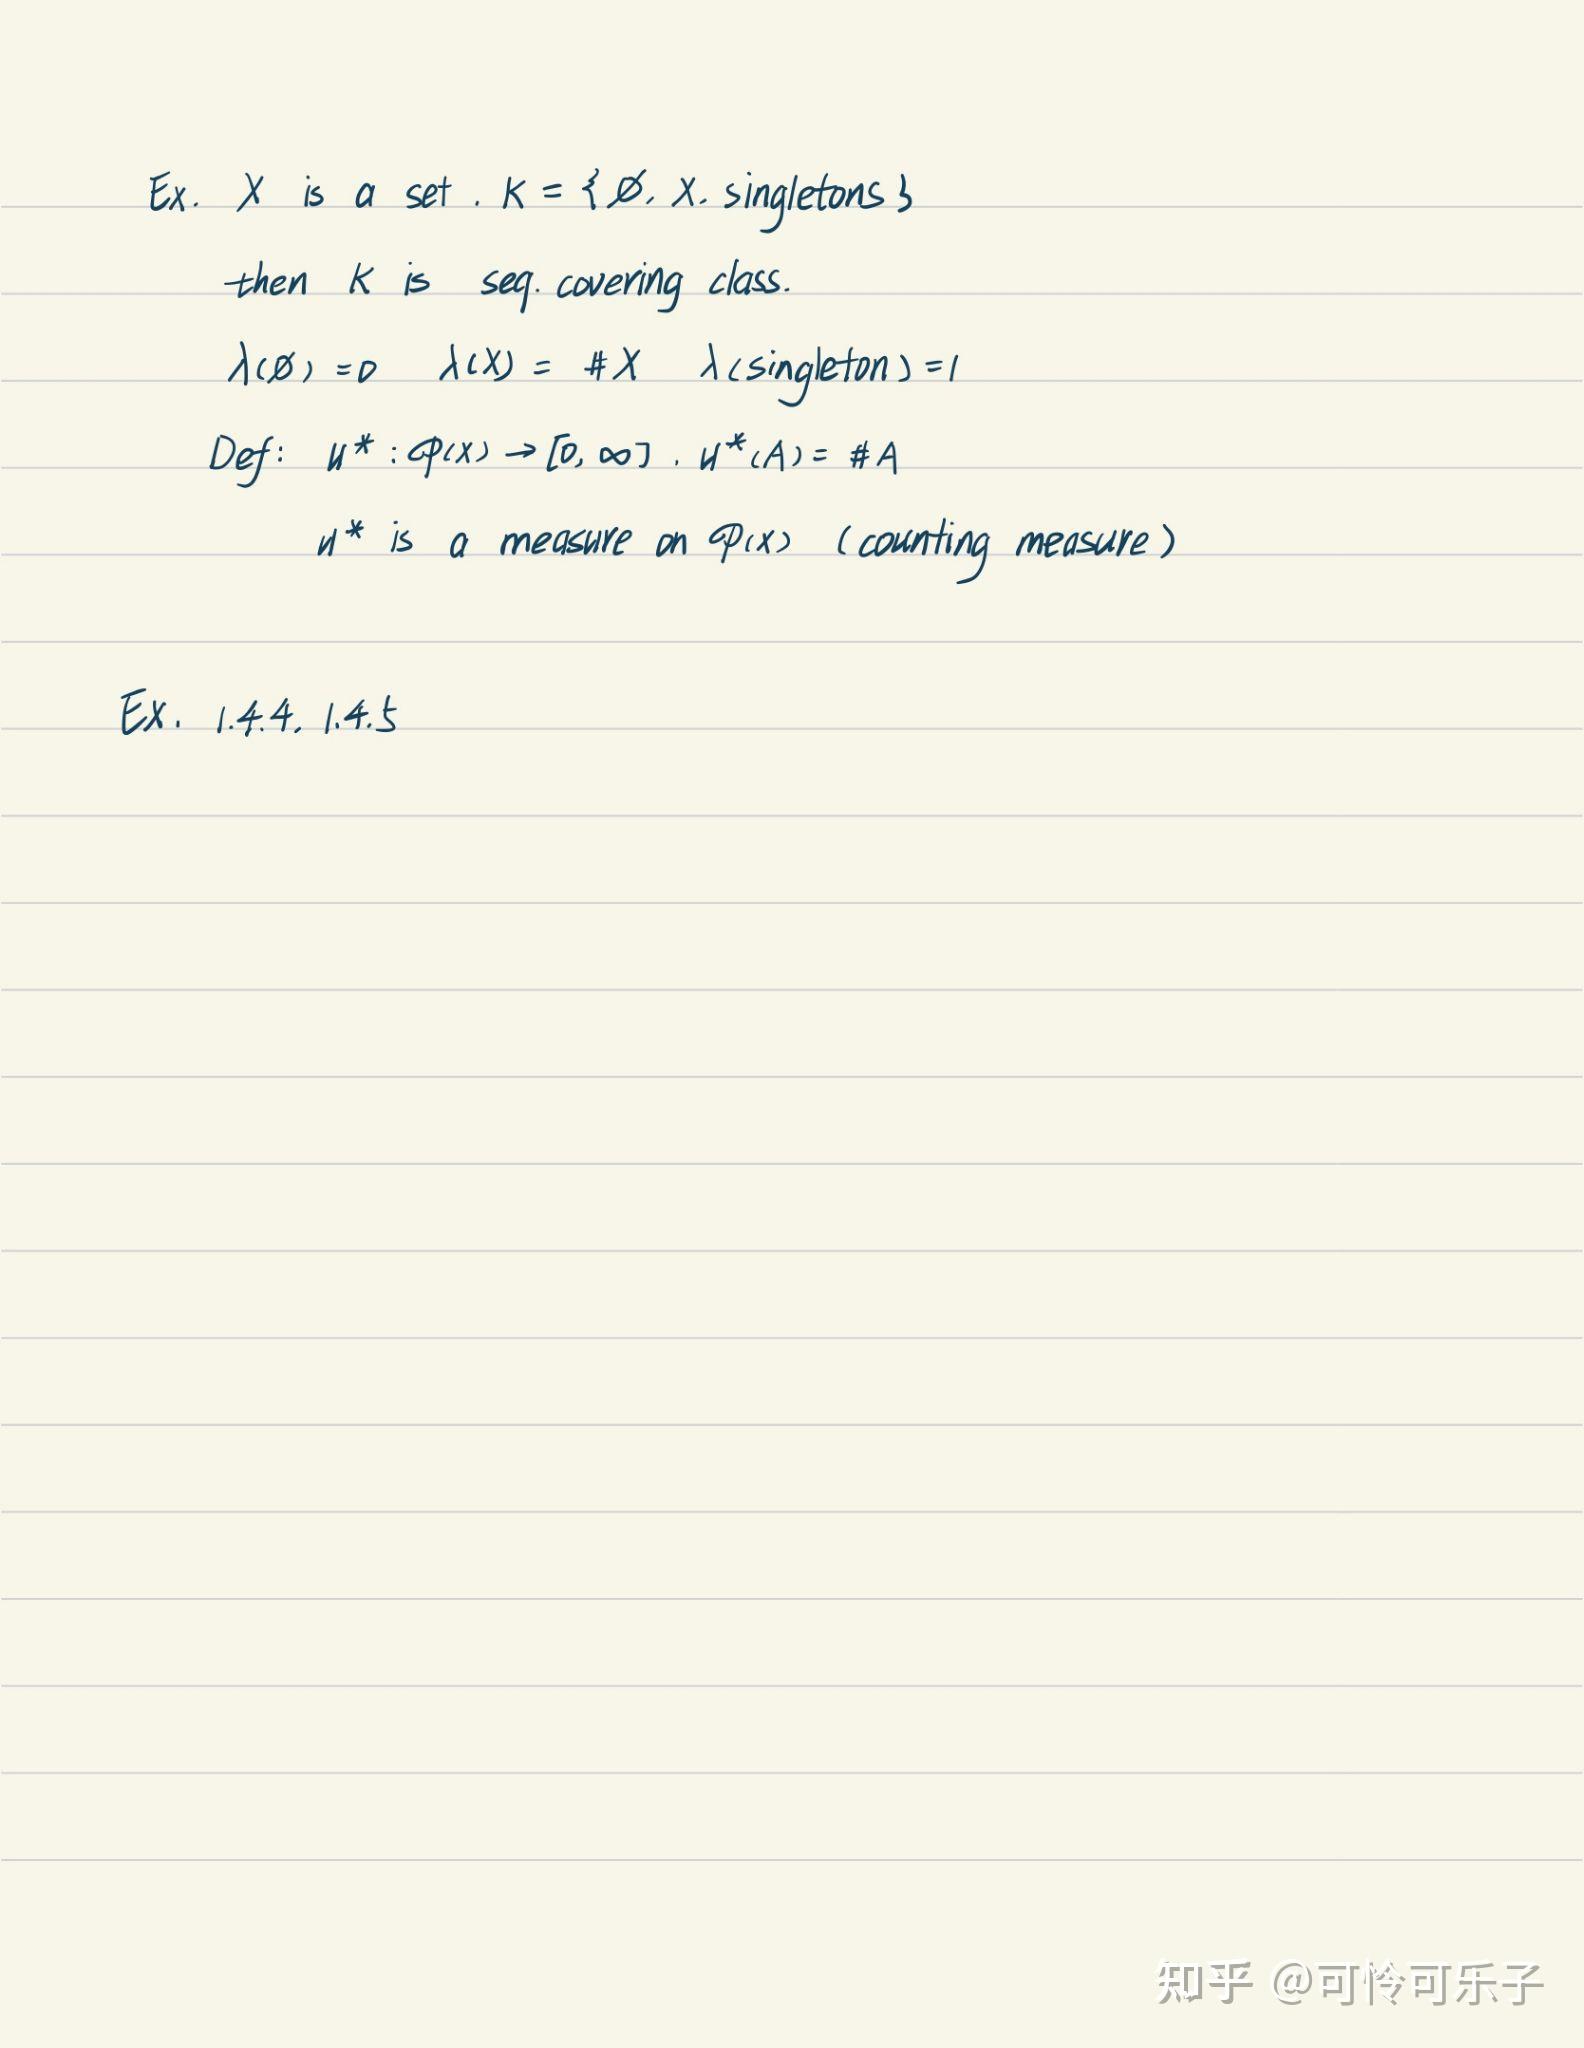 Ex. X is a set. K = {∅, X, singletons}
then K is seq. covering class.
λ(∅) = 0 λ(X) = #X λ(singleton) = 1
Def: μ* : 𝒫(X) → [0, ∞]. μ*(A) = #A
μ* is a measure on 𝒫(X) (counting measure)
Ex. 1.4.4, 1.4.5
知乎 @可怜可乐子